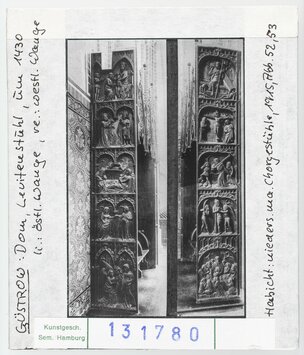 GÜSTROW: Dom, Levitenstuhl, um 1430
li.: östl. Wange, re.: westl. Wange
Habicht: nieders. ma. Chorgestühle, 1915, Abb. 52, 53
Kunstgesch.
Sem. Hamburg
131780